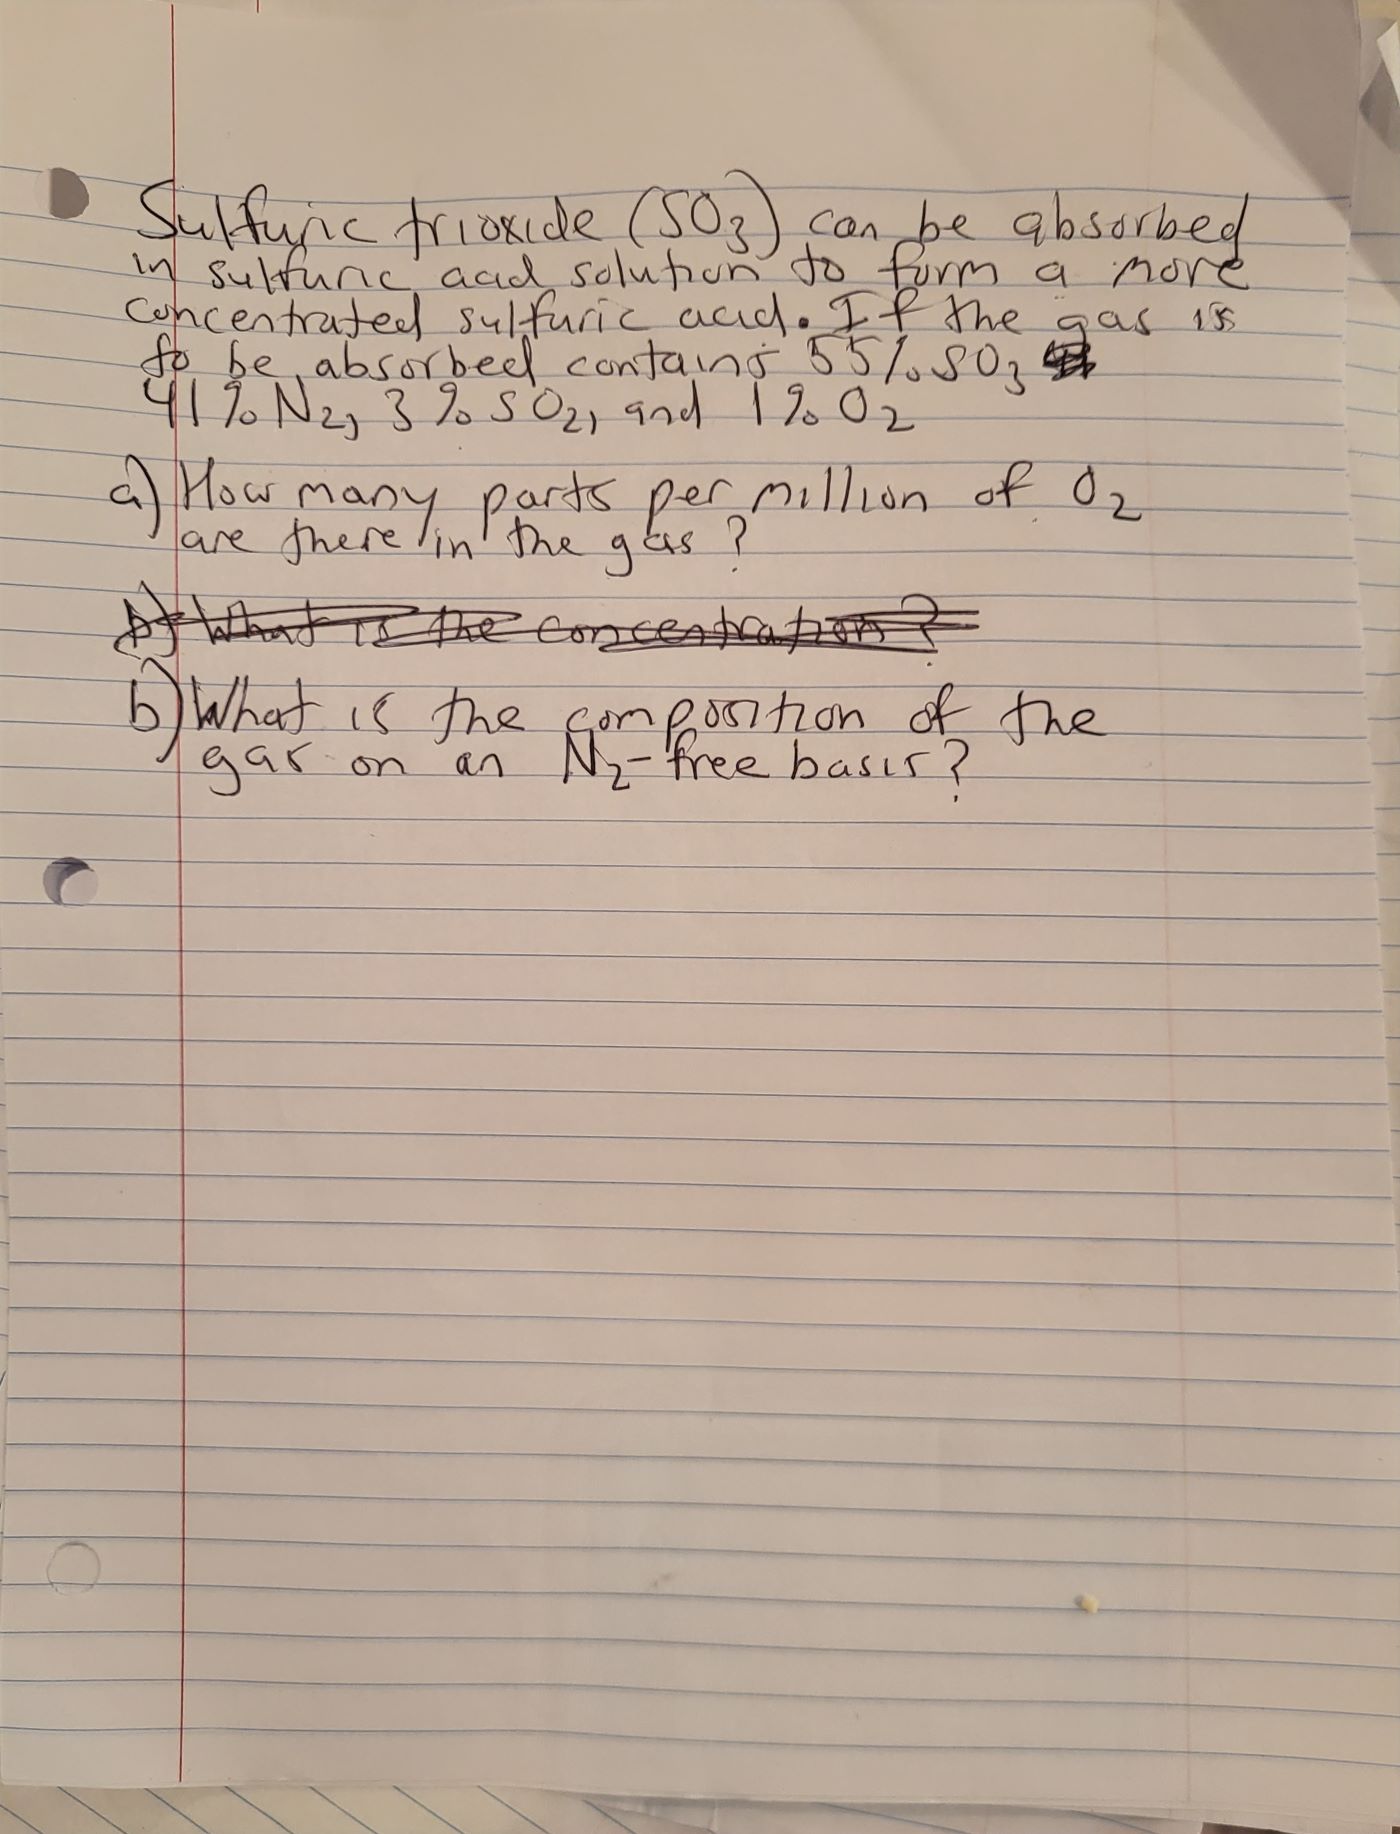 Sulfuric trioxide (SO3) can be absorbed
in sulfuric acid solution to form a more
concentrated sulfuric acid. If the gas is
to be absorbed contains 55% SO3
41% N2, 3% SO2, and 1% O2
a) How many parts per million of O2
are there in the gas?
b) What is the concentration?
b) What is the composition of the
gas on an N2-free basis?